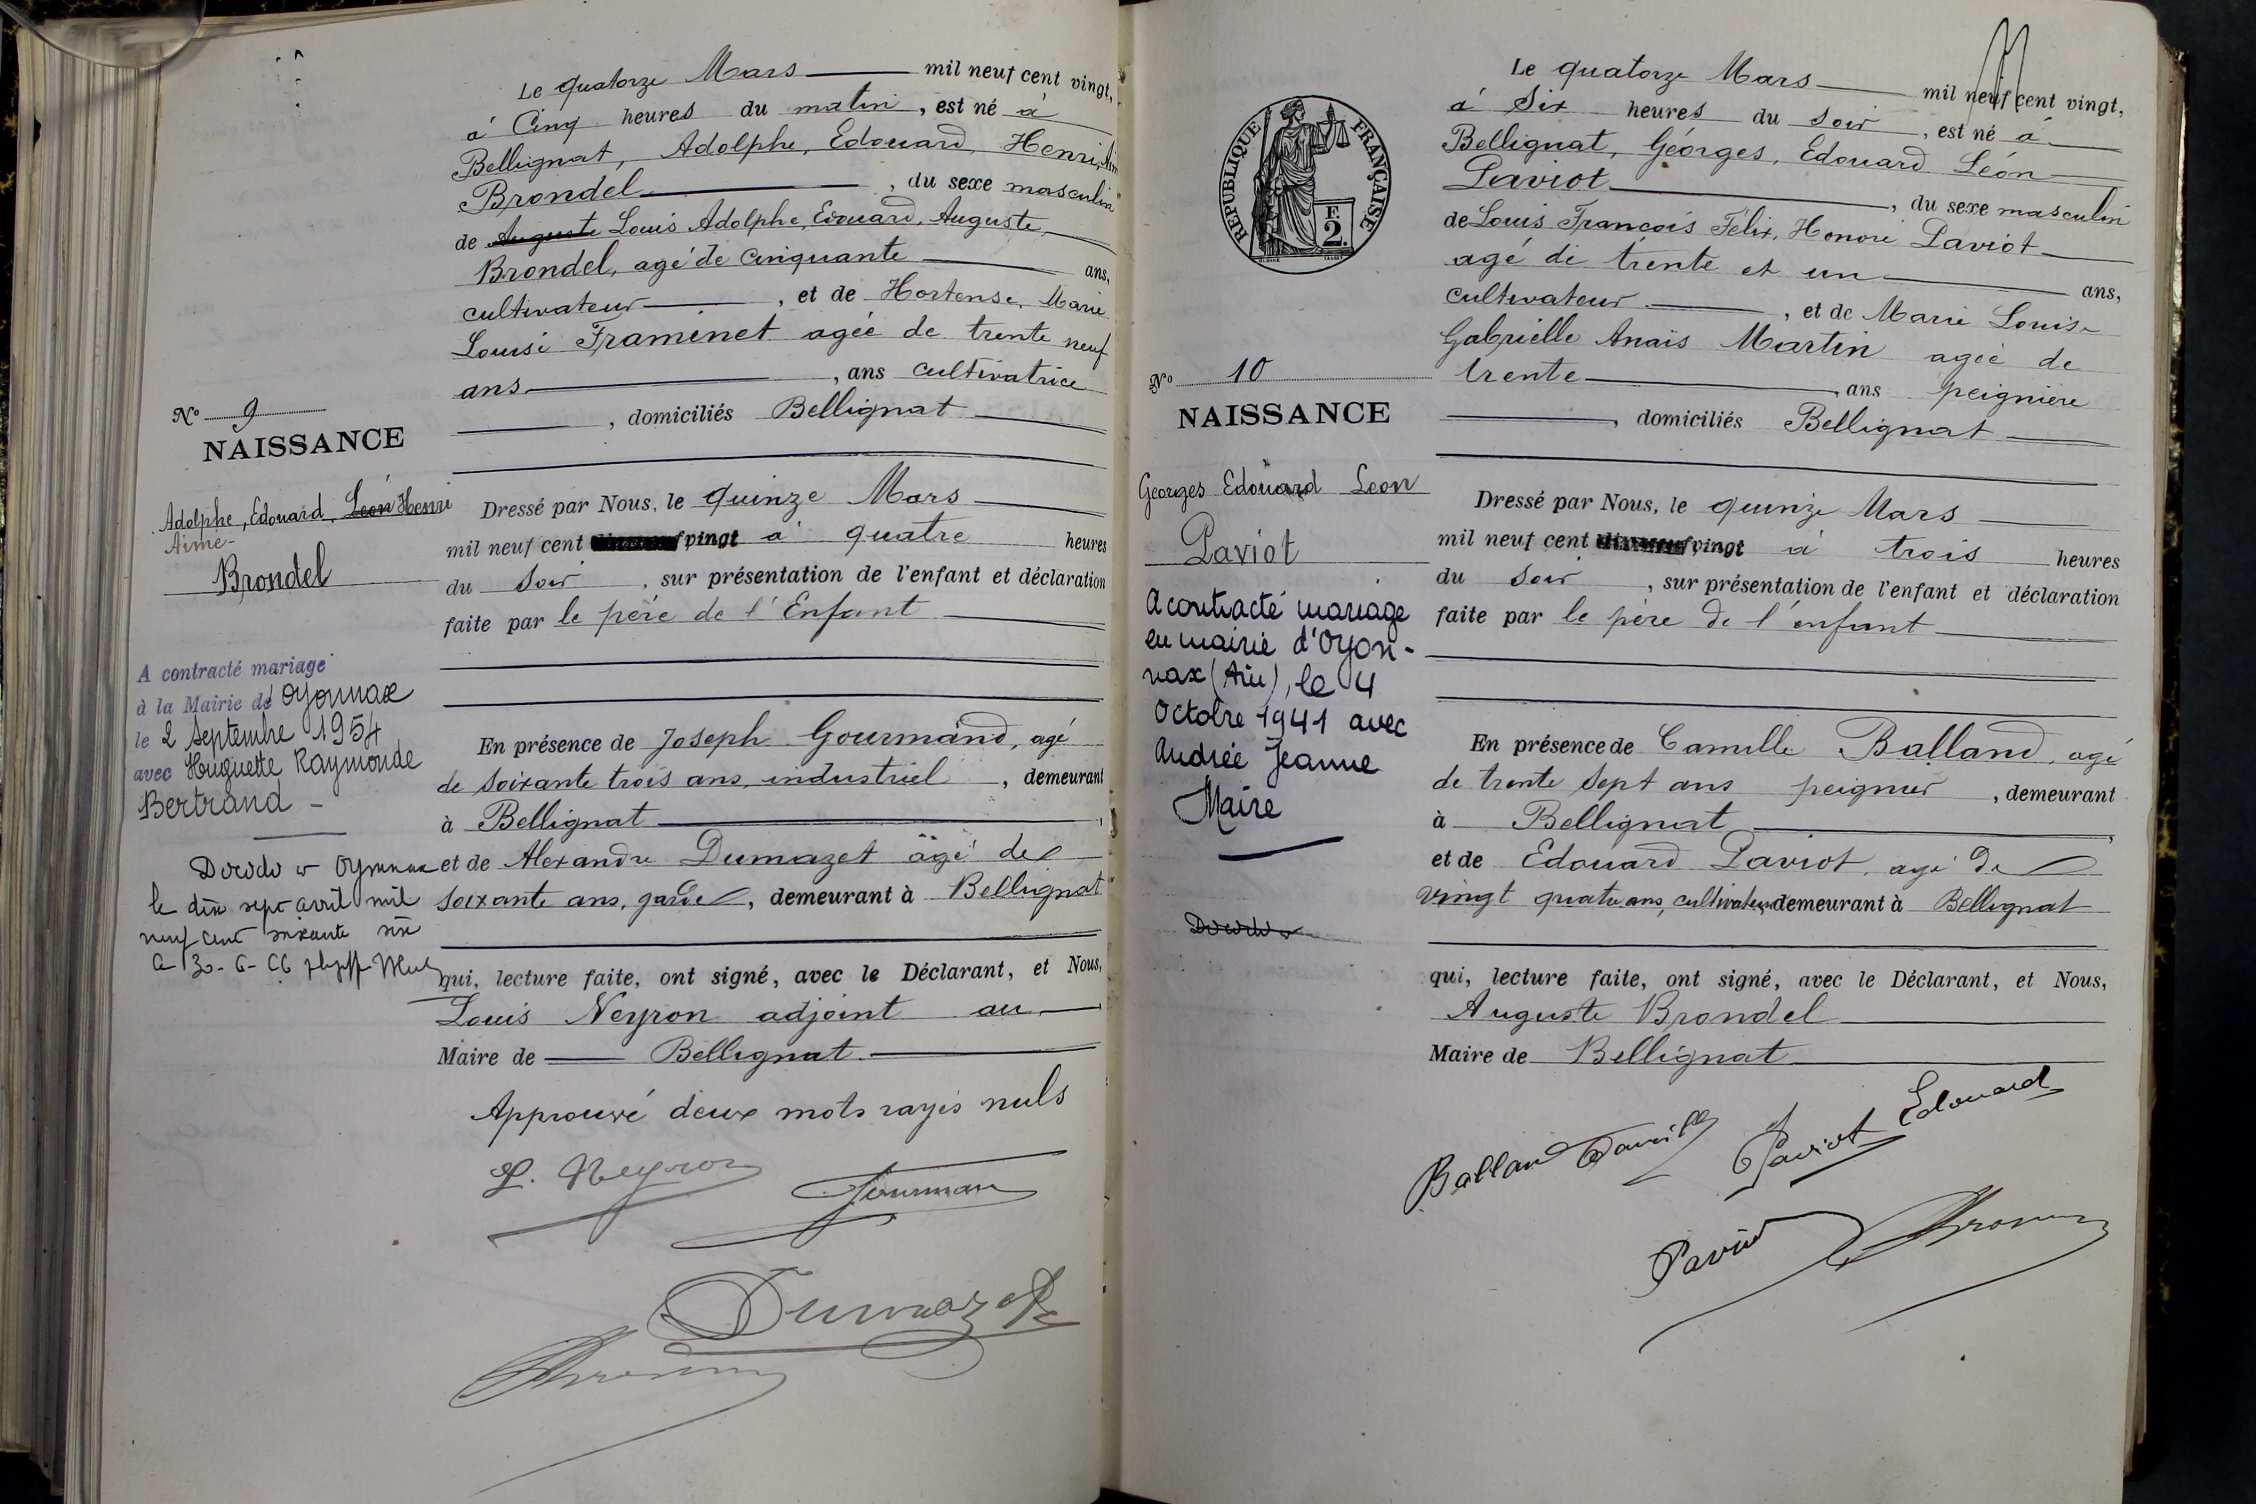 Le quatorze Mars mil neuf cent vingt,
à Cinq heures du matin, est né à
Bellignat, Adolphe, Edouard, Henri,
Brondel, du sexe masculin
de Auguste Louis Adolphe, Edouard, Auguste
Brondel, agé de Cinquante ans,
cultivateur, et de Hortense, Marie
Louise Framinet agée de trente neuf
ans, ans cultivatrice
, domiciliés Bellignat
No 9
NAISSANCE
Adolphe, Edouard, Léon Henri
Aimé-
Brondel
Dressé par Nous, le quinze Mars
mil neuf cent vingt à quatre heures
du Soir, sur présentation de l'enfant et déclaration
faite par le père de l'Enfant
A contracté mariage
à la Mairie d'Oyonnax
le 2 Septembre 1954
avec Huguette Raymonde
Bertrand -
En présence de Joseph Gourmand, agé
de soixante trois ans, industriel, demeurant
à Bellignat
et de Alexandre Dumazet âgé de
soixante ans, garde, demeurant à Bellignat
Décédé à Oyonnax
le dix sept avril mil
neuf cent soixante six
qui, lecture faite, ont signé, avec le Déclarant, et Nous,
Louis Neyron adjoint au
Maire de Bellignat.
Approuvé deux mots rayés nuls
L. Neyron
Gourman
Dumazet
RÉPUBLIQUE FRANÇAISE
F.
2.
Le quatorze Mars mil neuf cent vingt,
à Six heures du soir, est né à
Bellignat, Géorges, Edouard Léon
Paviot, du sexe masculin
de Louis François Félix, Honoré Paviot
agé de trente et un ans,
cultivateur, et de Marie Louise
Gabrielle Anaïs Martin agée de
trente, ans peignière
, domiciliés Bellignat
No 10
NAISSANCE
Georges Edouard Leon
Paviot
Dressé par Nous, le quinze Mars
mil neuf cent vingt à trois heures
du Soir, sur présentation de l'enfant et déclaration
faite par le père de l'enfant
A contracté mariage
en mairie d'Oyon-
nax (Ain), le 4
Octobre 1941 avec
Andrée Jeanne
Maire
Décédé à
En présence de Camille Balland, agé
de trente sept ans peignier, demeurant
à Bellignat
et de Edouard Paviot, agé de
vingt quatre ans, cultivateur demeurant à Bellignat
qui, lecture faite, ont signé, avec le Déclarant, et Nous,
Auguste Brondel
Maire de Bellignat
Balland Camille
Paviot Edouard
Paviot